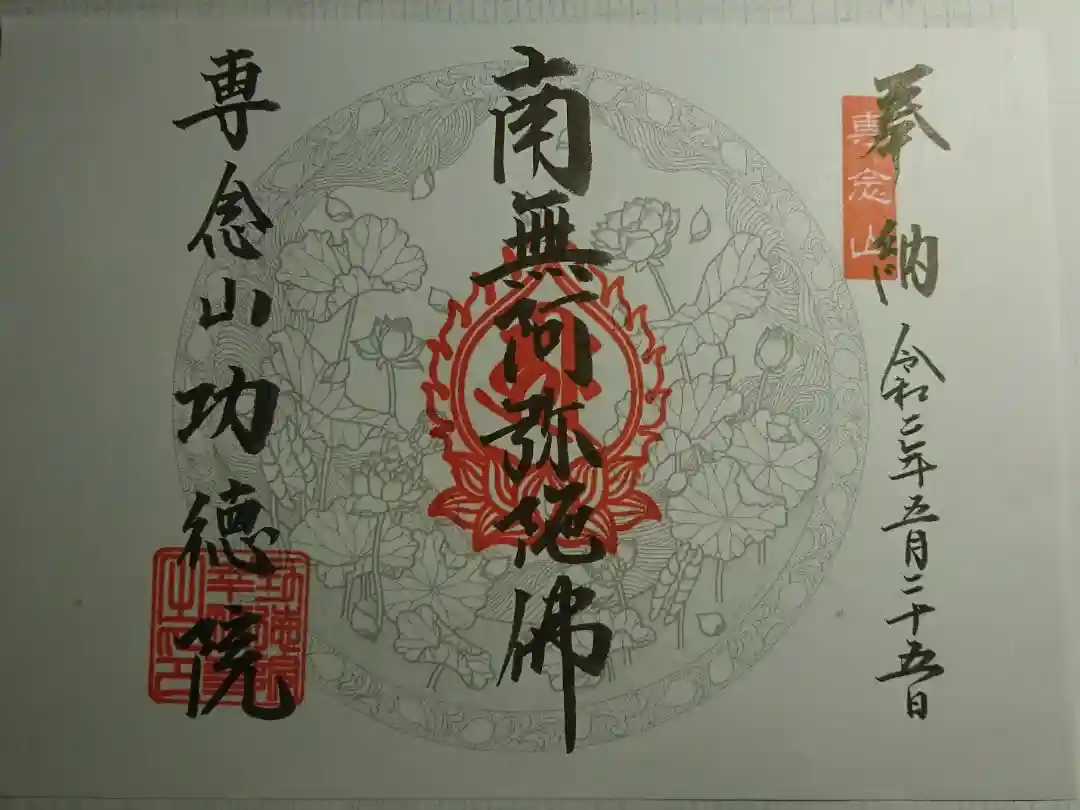 奉納
専念山
令和三年五月二十五日
南無阿弥陀佛
専念山功徳院